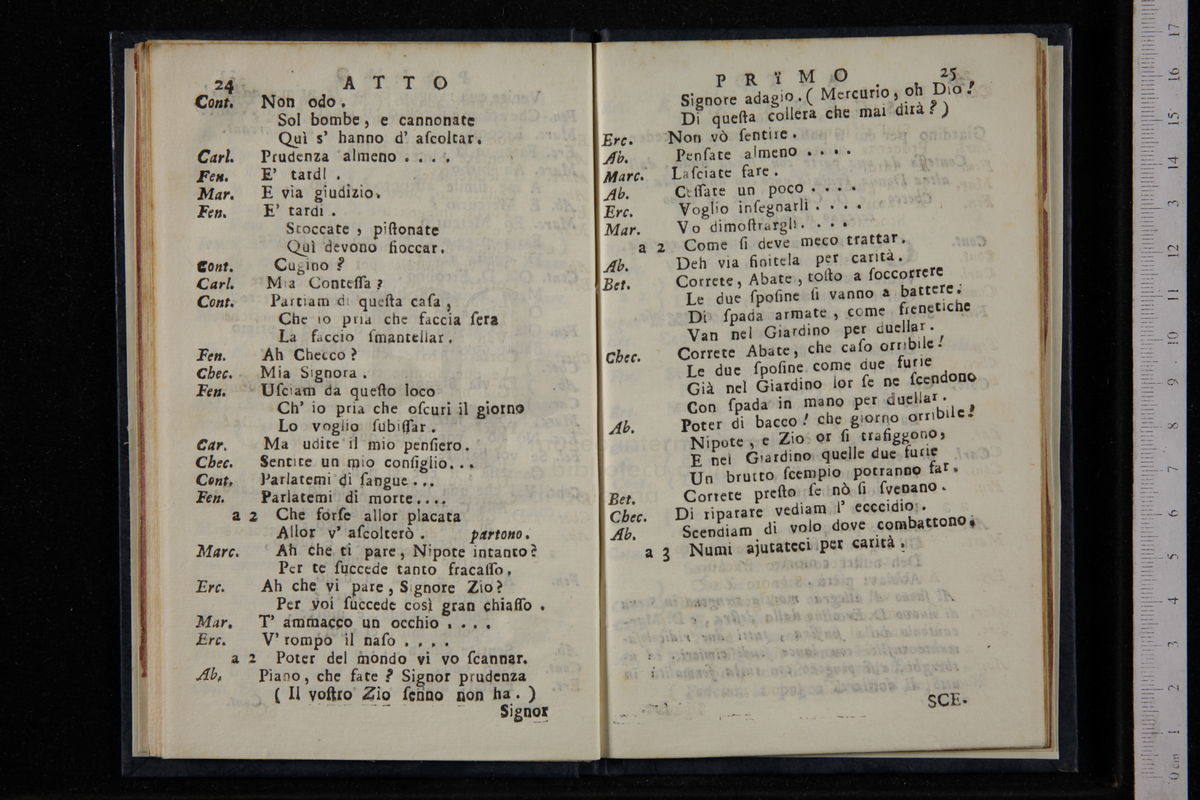 24 ATTO
Cont. Non odo.
Sol bombe, e cannonate
Quì s' hanno d' aſcoltar.
Carl. Prudenza almeno . . . .
Fen. E' tardl .
Mar. E via giudizio.
Fen. E' tardi .
Stoccate , piſtonate
Quì devono fioccar.
Cont. Cugino ?
Carl. Mia Conteſſa ?
Cont. Partiam di queſta caſa ,
Che io pria che faccia ſera
La faccio ſmantellar.
Fen. Ah Checco ?
Chec. Mia Signora .
Fen. Uſciam da queſto loco
Ch' io pria che oſcuri il giorno
Lo voglio ſubiſſar.
Car. Ma udite il mio penſiero.
Chec. Sentite un mio conſiglio...
Cont. Parlatemi di ſangue ...
Fen. Parlatemi di morte....
a 2 Che forſe allor placata
Allor v' aſcolterò . partono.
Marc. Ah che ti pare, Nipote intanto?
Per te ſuccede tanto fracaſſo.
Erc. Ah che vi pare, Signore Zio?
Per voi ſuccede così gran chiaſſo .
Mar. T' ammacco un occhio . . . .
Erc. V' rompo il naſo . . . .
a 2 Poter del mondo vi vo ſcannar.
Ab. Piano, che fate ? Signor prudenza
( Il voſtro Zio ſenno non ha. )
Signor
PRIMO 25
Signore adagio. ( Mercurio, oh Dio!
Di queſta collera che mai dirà? )
Erc. Non vò ſentire .
Ab. Penſate almeno . . . .
Marc. Laſciate fare .
Ab. Ceſſate un poco . . . .
Erc. Voglio inſegnarli . . . .
Mar. Vo dimoſtrargli. . . .
a 2 Come ſi deve meco trattar.
Ab. Deh via finitela per carità.
Bet. Correte, Abate, toſto a ſoccorrere
Le due ſpoſine ſi vanno a battere.
Di ſpada armate , come frenetiche
Van nel Giardino per duellar.
Chec. Correte Abate, che caſo orribile!
Le due ſpoſine come due furie
Già nel Giardino lor ſe ne ſcendono
Con ſpada in mano per duellar.
Ab. Poter di bacco! che giorno orribile!
Nipote, e Zio or ſi trafiggono,
E nel Giardino quelle due furie
Un brutto ſcempio potranno far.
Bet. Correte preſto ſe nò ſi ſvenano .
Chec. Di riparare vediam l' ecceidio .
Ab. Scendiam di volo dove combattono.
a 3 Numi ajutateci per carità.
SCE-